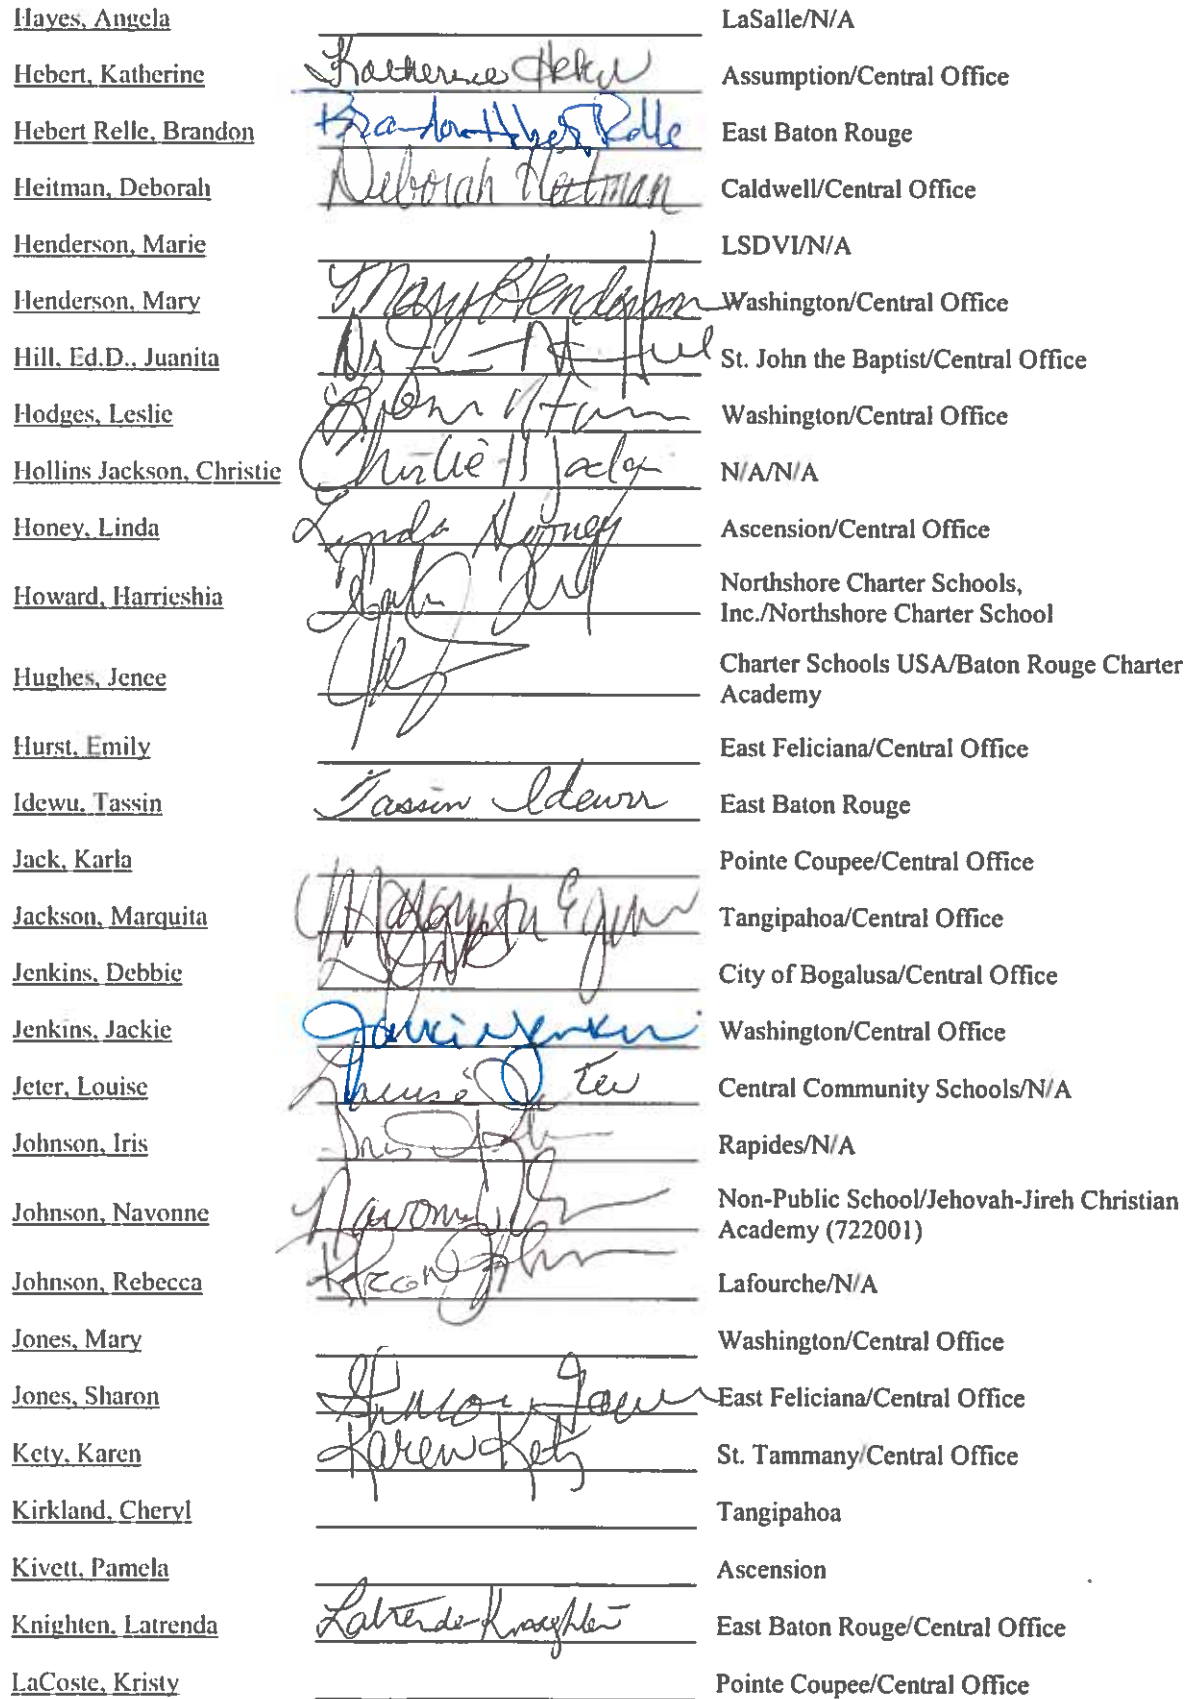 Hayes, Angela LaSalle/N/A
Hebert, Katherine Katherine Hebert Assumption/Central Office
Hebert Relle, Brandon Brandon Hebert Relle East Baton Rouge
Heitman, Deborah Deborah Heitman Caldwell/Central Office
Henderson, Marie LSDVI/N/A
Henderson, Mary Mary Henderson Washington/Central Office
Hill, Ed.D., Juanita Dr Hill St. John the Baptist/Central Office
Hodges, Leslie Washington/Central Office
Hollins Jackson, Christie Christie H Jackson N/A/N/A
Honey, Linda Linda Honey Ascension/Central Office
Howard, Harrieshia Northshore Charter Schools,
Inc./Northshore Charter School
Hughes, Jenee Charter Schools USA/Baton Rouge Charter
Academy
Hurst, Emily East Feliciana/Central Office
Idewu, Tassin Tassin Idewu East Baton Rouge
Jack, Karla Pointe Coupee/Central Office
Jackson, Marquita Tangipahoa/Central Office
Jenkins, Debbie City of Bogalusa/Central Office
Jenkins, Jackie Jackie Jenkins Washington/Central Office
Jeter, Louise Louise Jeter Central Community Schools/N/A
Johnson, Iris Iris Rapides/N/A
Johnson, Navonne Navonne Non-Public School/Jehovah-Jireh Christian
Academy (722001)
Johnson, Rebecca Lafourche/N/A
Jones, Mary Washington/Central Office
Jones, Sharon Sharon Jones East Feliciana/Central Office
Kety, Karen Karen Kety St. Tammany/Central Office
Kirkland, Cheryl Tangipahoa
Kivett, Pamela Ascension
Knighten, Latrenda Latrenda Knighten East Baton Rouge/Central Office
LaCoste, Kristy Pointe Coupee/Central Office